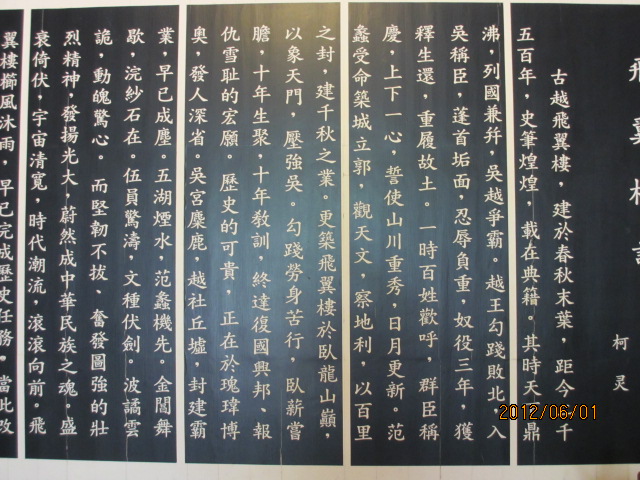 飛翼樓記
柯灵
古越飛翼樓，建於春秋末葉，距今二千
五百年，史筆煌煌，載在典籍。其時天下鼎
沸，列國兼并，吳越爭霸。越王勾踐敗北，入
吳稱臣，蓬首垢面，忍辱負重，奴役三年，獲
釋生還，重履故土。一時百姓歡呼，群臣稱
慶，上下一心，誓使山川重秀，日月更新。范
蠡受命築城立郭，觀天文，察地利，以百里
之封，建千秋之業。更築飛翼樓於臥龍山巔，
以象天門，壓強吳。勾踐勞身苦行，臥薪嘗
膽，十年生聚，十年敎訓，終達復國興邦、報
仇雪耻的宏願。歷史的可貴，正在於瑰瑋博
奧，發人深省。吳宮麋鹿，越社丘墟，封建霸
業，早已成塵。五湖煙水，范蠡機先。金閶舞
歇，浣紗石在。伍員驚濤，文種伏劍。波譎雲
詭，動魄驚心。而堅韌不拔、奮發圖強的壯
烈精神，發揚光大，蔚然成中華民族之魂。盛
衰倚伏，宇宙清寬，時代潮流，滾滾向前。飛
翼樓櫛風沐雨，早已完成歷史任務，當此改
2012/06/01